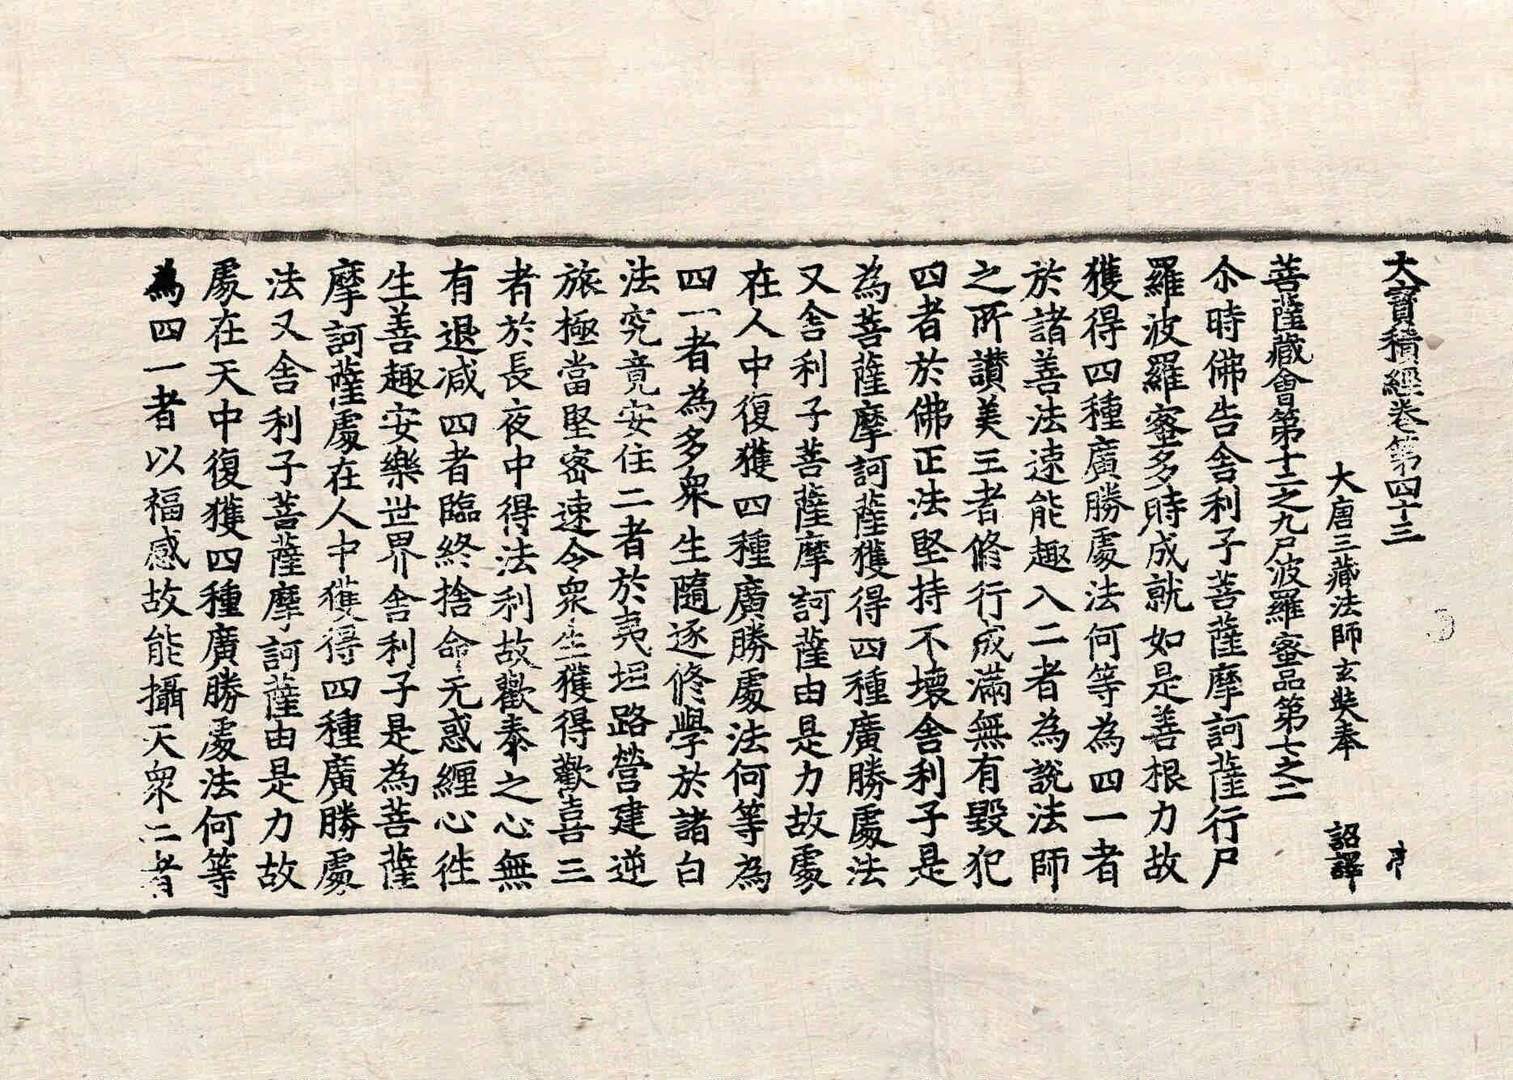 大寶積經卷第四十三
大唐三藏法師玄奘奉 詔譯
菩薩藏會第十二之九尸波羅蜜品第七之二
尒時佛告舍利子菩薩摩訶薩行尸
羅波羅蜜多時成就如是善根力故
獲得四種廣勝處法何等為四一者
於諸善法速能趣入二者為說法師
之所讃美三者修行成滿無有毀犯
四者於佛正法堅持不壞舍利子是
為菩薩摩訶薩獲得四種廣勝處法
又舍利子菩薩摩訶薩由是力故處
在人中復獲四種廣勝處法何等為
四一者為多衆生隨逐修學於諸白
法究竟安住二者於夷坦路營建逆
旅極當堅密速令衆生獲得歡喜三
者於長夜中得法利故歡泰之心無
有退减四者臨終捨命无惑纏心往
生善趣安樂世界舍利子是為菩薩
摩訶薩處在人中獲得四種廣勝處
法又舍利子菩薩摩訶薩由是力故
處在天中復獲四種廣勝處法何等
為四一者以福感故能攝天衆二者